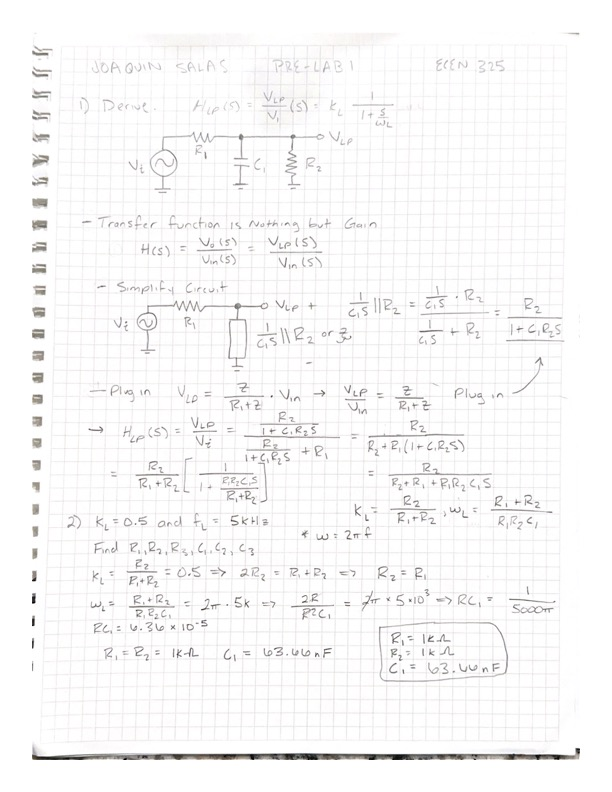 JOAQUIN SALAS PRE-LAB 1 ECEN 325
1) Derive. H_LP(s) = V_LP/V_i (s) = K_L 1/(1 + s/ω_L)
V_LP
R_1
V_i C_1 R_2
- Transfer function is Nothing but Gain
H(s) = V_o(s)/V_in(s) = V_LP(s)/V_in(s)
- Simplify Circuit
V_LP + 1/(C_1S) || R_2 = (1/(C_1S) · R_2)/(1/(C_1S) + R_2) = R_2/(1 + C_1R_2S)
V_i R_1 1/(C_1S) || R_2 or Z
-
- Plug in V_LP = Z/(R_1+Z) · V_in → V_LP/V_in = Z/(R_1+Z) Plug in
→ H_LP(s) = V_LP/V_i = (R_2/(1 + C_1R_2S))/(R_2/(1+C_1R_2S) + R_1) = R_2/(R_2 + R_1(1 + C_1R_2S))
= R_2/(R_1 + R_2) [1/(1 + R_1R_2C_1S/(R_1+R_2))] = R_2/(R_2 + R_1 + R_1R_2C_1S)
K_L = R_2/(R_1+R_2), ω_L = (R_1 + R_2)/(R_1R_2C_1)
2) K_L = 0.5 and f_L = 5kHz * ω = 2πf
Find R_1, R_2, R_3, C_1, C_2, C_3
K_L = R_2/(R_1+R_2) = 0.5 => 2R_2 = R_1+R_2 => R_2 = R_1
ω_L = (R_1+R_2)/(R_1R_2C_1) = 2π · 5k => 2R/(R²C_1) = 2π × 5×10³ => RC_1 = 1/(5000π)
RC_1 = 6.36 × 10⁻⁵
R_1 = R_2 = 1kΩ C_1 = 63.66nF
R_1 = 1kΩ
R_2 = 1kΩ
C_1 = 63.66nF